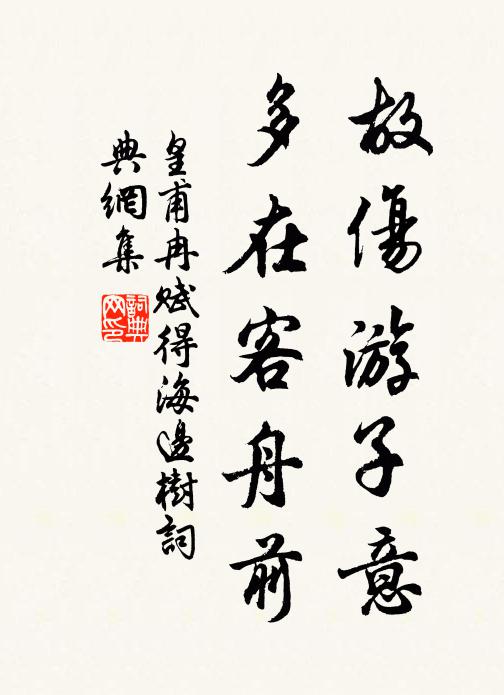 故傷游子意
多在客舟前
皇甫冉賦得海邊樹詞
典網集
詞典网印